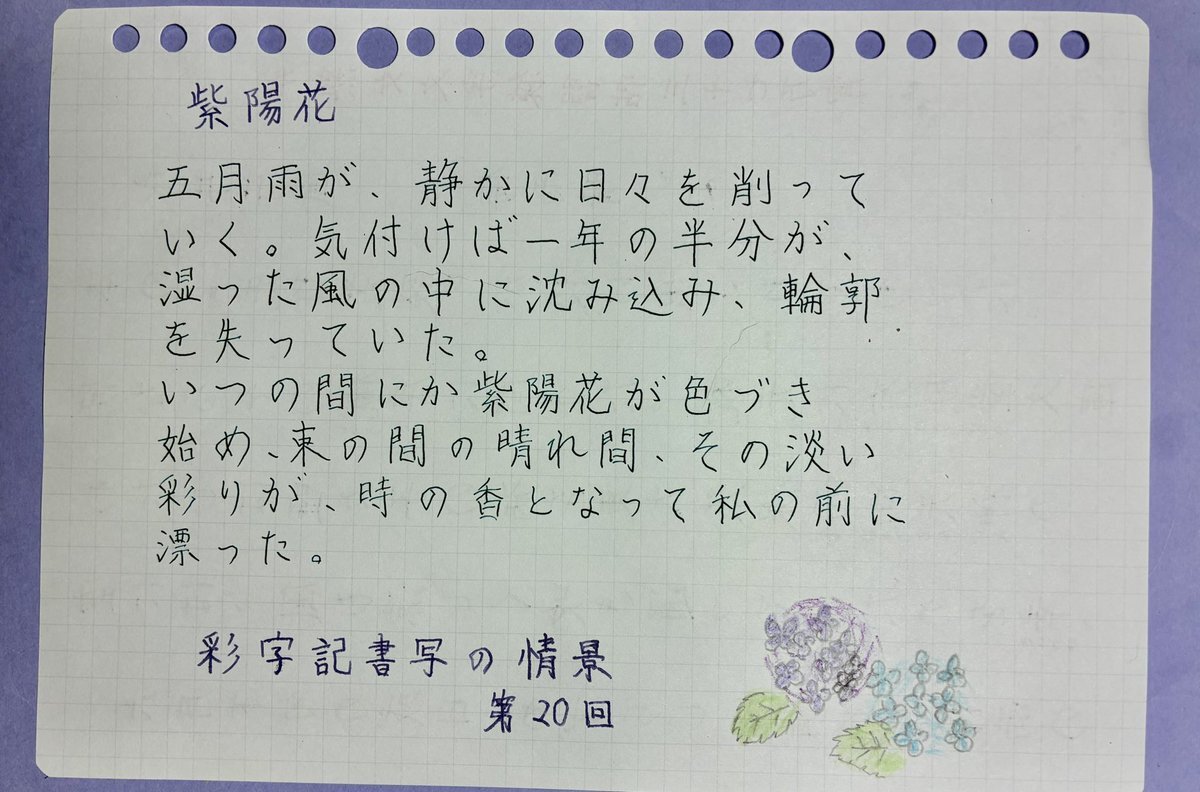 紫陽花
五月雨が、静かに日々を削って
いく。気付けば一年の半分が、
湿った風の中に沈み込み、輪郭
を失っていた。
いつの間にか紫陽花が色づき
始め、束の間の晴れ間、その淡い
彩りが、時の香となって私の前に
漂った。
彩字記書写の情景
第20回